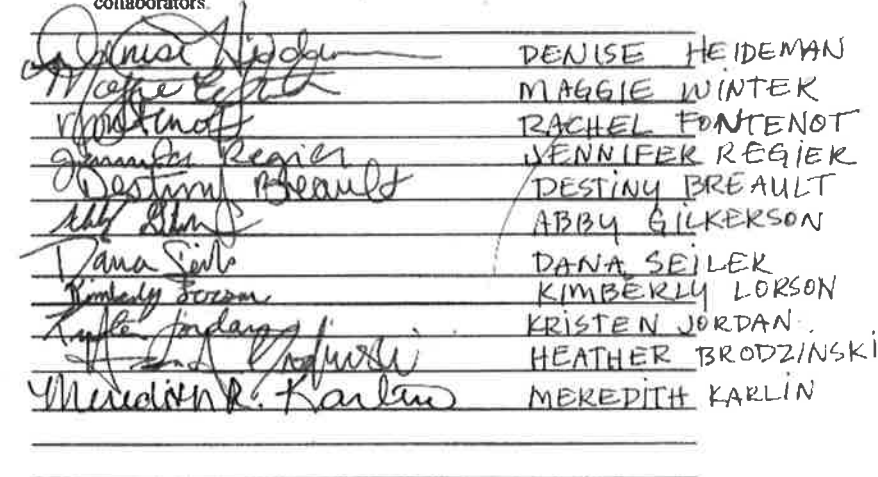 collaborators.
Denise DENISE HEIDEMAN
Maggie MAGGIE WINTER
RACHEL FONTENOT
Jennifer Regier JENNIFER REGIER
Destiny Breault DESTINY BREAULT
Abby ABBY GILKERSON
Dana Seiler DANA SEILER
Kimberly Lorson KIMBERLY LORSON
Kristen Jordan KRISTEN JORDAN
HEATHER BRODZINSKI
Meredith R. Karlin MEREDITH KARLIN